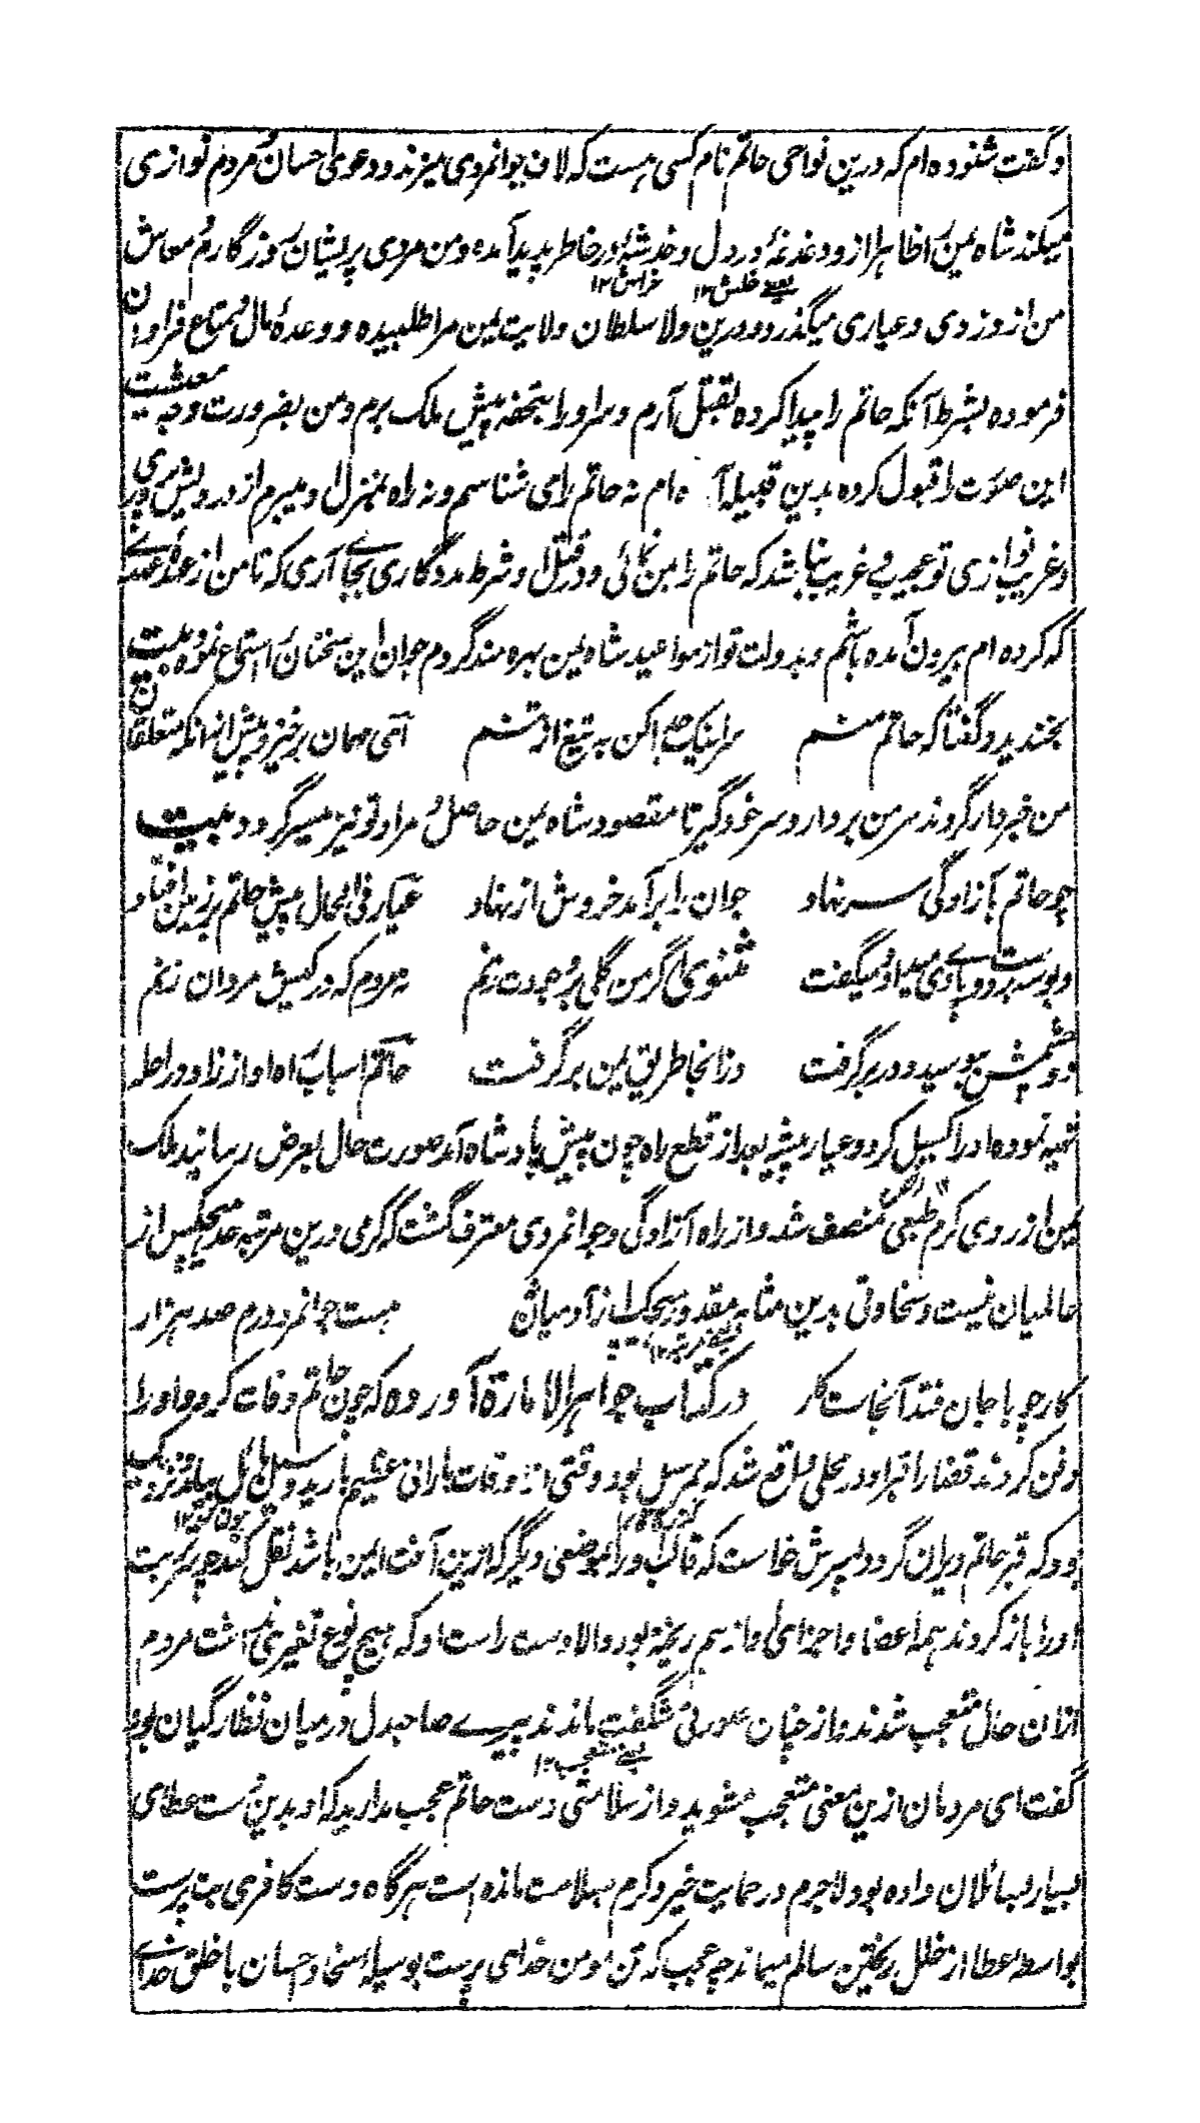 و گفت شنوده ام که درین نواحی حاتم نام کسی هست که لاف جوانمردی میزند و دعوی احسان و مردم نوازی
میکند شاه یمن را ظاهرا ازو دغدغهٔ در دل و خدشهٔ در خاطر پدید آمده و من مردی پریشان روزگارم و معاش
یعنی خلش ۱۲ خراش ۱۲
من از دزدی و عیاری میگذرد و درین ولا سلطان ولایت یمن مرا طلبیده و وعدهٔ مال و متاع فراوان
فرموده بشرط آنکه حاتم را پیدا کرده بقتل آرم و سر او را بتحفه پیش ملک برم و من بضرورت وجه معیشت
این صورت را قبول کرده بدین قبیله آ ه ام نه حاتم را می شناسم و نه راه بمنزل او میبرم از درویش پروری
و غریب نوازی تو عجب و غریب نباشد که حاتم را بمن نمائی و در قتل او شرط مددگاری بجای آری که تا من از عهدهٔ عهدے
که کرده ام بیرون آمده باشم و بدولت تو از مواعید شاه یمن بهره مند گردم جوان این سخنان را استماع نموده بیت
بخندید و گفتا که حاتم منم سر اینک جدا کن به تیغ از تنم ای مهمان برخیز و پیش ازانکه متعلقان
من خبردار گردند سر من بردار و سر خود گیر تا مقصود شاه یمن حاصل و مراد تو نیز میسر گردد بیت
چو حاتم بآزادگی سر نهاد جوان را برآمد خروش از نهاد عیار فی الحال پیش حاتم بر زمین افتاد
و بوسه بر دست و پای وی میداد و میگفت مثنوی اگر من گلی بر وجودت زنم نه مردم که در کیش مردان زنم
دو چشمش ببوسید و در بر گرفت وزانجا طریق یمن بر گرفت حاتم اسباب راه او از زاد و راحله
تهیه نموده او را گسیل کرد و عیار پیشه بعد از قطع راه چون پیش پادشاه آمد صورت حال بعرض رسانید ملک
یمن از روی کرم طبعی منصف شد و از راه آزادگی و جوانمردی معترف گشت که کرمی درین مرتبه حد هیچکس از
عالمیان نیست و سخاوتی بدین مثابه مقدور هیچیک از آدمیان هست جوانمرد درم صد هزار
کار چو با جان فتد آنجاست کار در کتاب جواهر الاماره آورده که چون حاتم وفات کرد و او را
دفن کردند قضا را قبر او در محلی واقع شد که ممر سیل بود وقتی از اوقات بارانی عظیم بارید و سیل هائل بیامد نزدیک
بود که قبر حاتم ویران گردد پسرش خواست که قالب او را بموضعی دیگر که ازین آفت ایمن باشد نقل کند چون تربت
او را باز کردند همه اعضا و اجزای او از هم ریخته بود و الا دست راست او که هیچ نوع تغیری نداشت مردم
ازان حال متعجب شدند و از چنان صورتی شگفت ماندند پیرے صاحبدل در میان نظارگیان بود
یعنی متعجب ۱۲
گفت ای مردمان ازین معنی متعجب مشوید و از سلامتی دست حاتم عجب مدارید که او بدین دست عطای
بسیار بسائلان داده بود لاجرم در حمایت خیر و کرم بسلامت مانده است هرگاه دست کافری بت پرست
بواسطه عطا از خلل ریختن سالم میماند چه عجب که تن مومن خدای پرست بوسیله سخا و احسان با خلق خدای